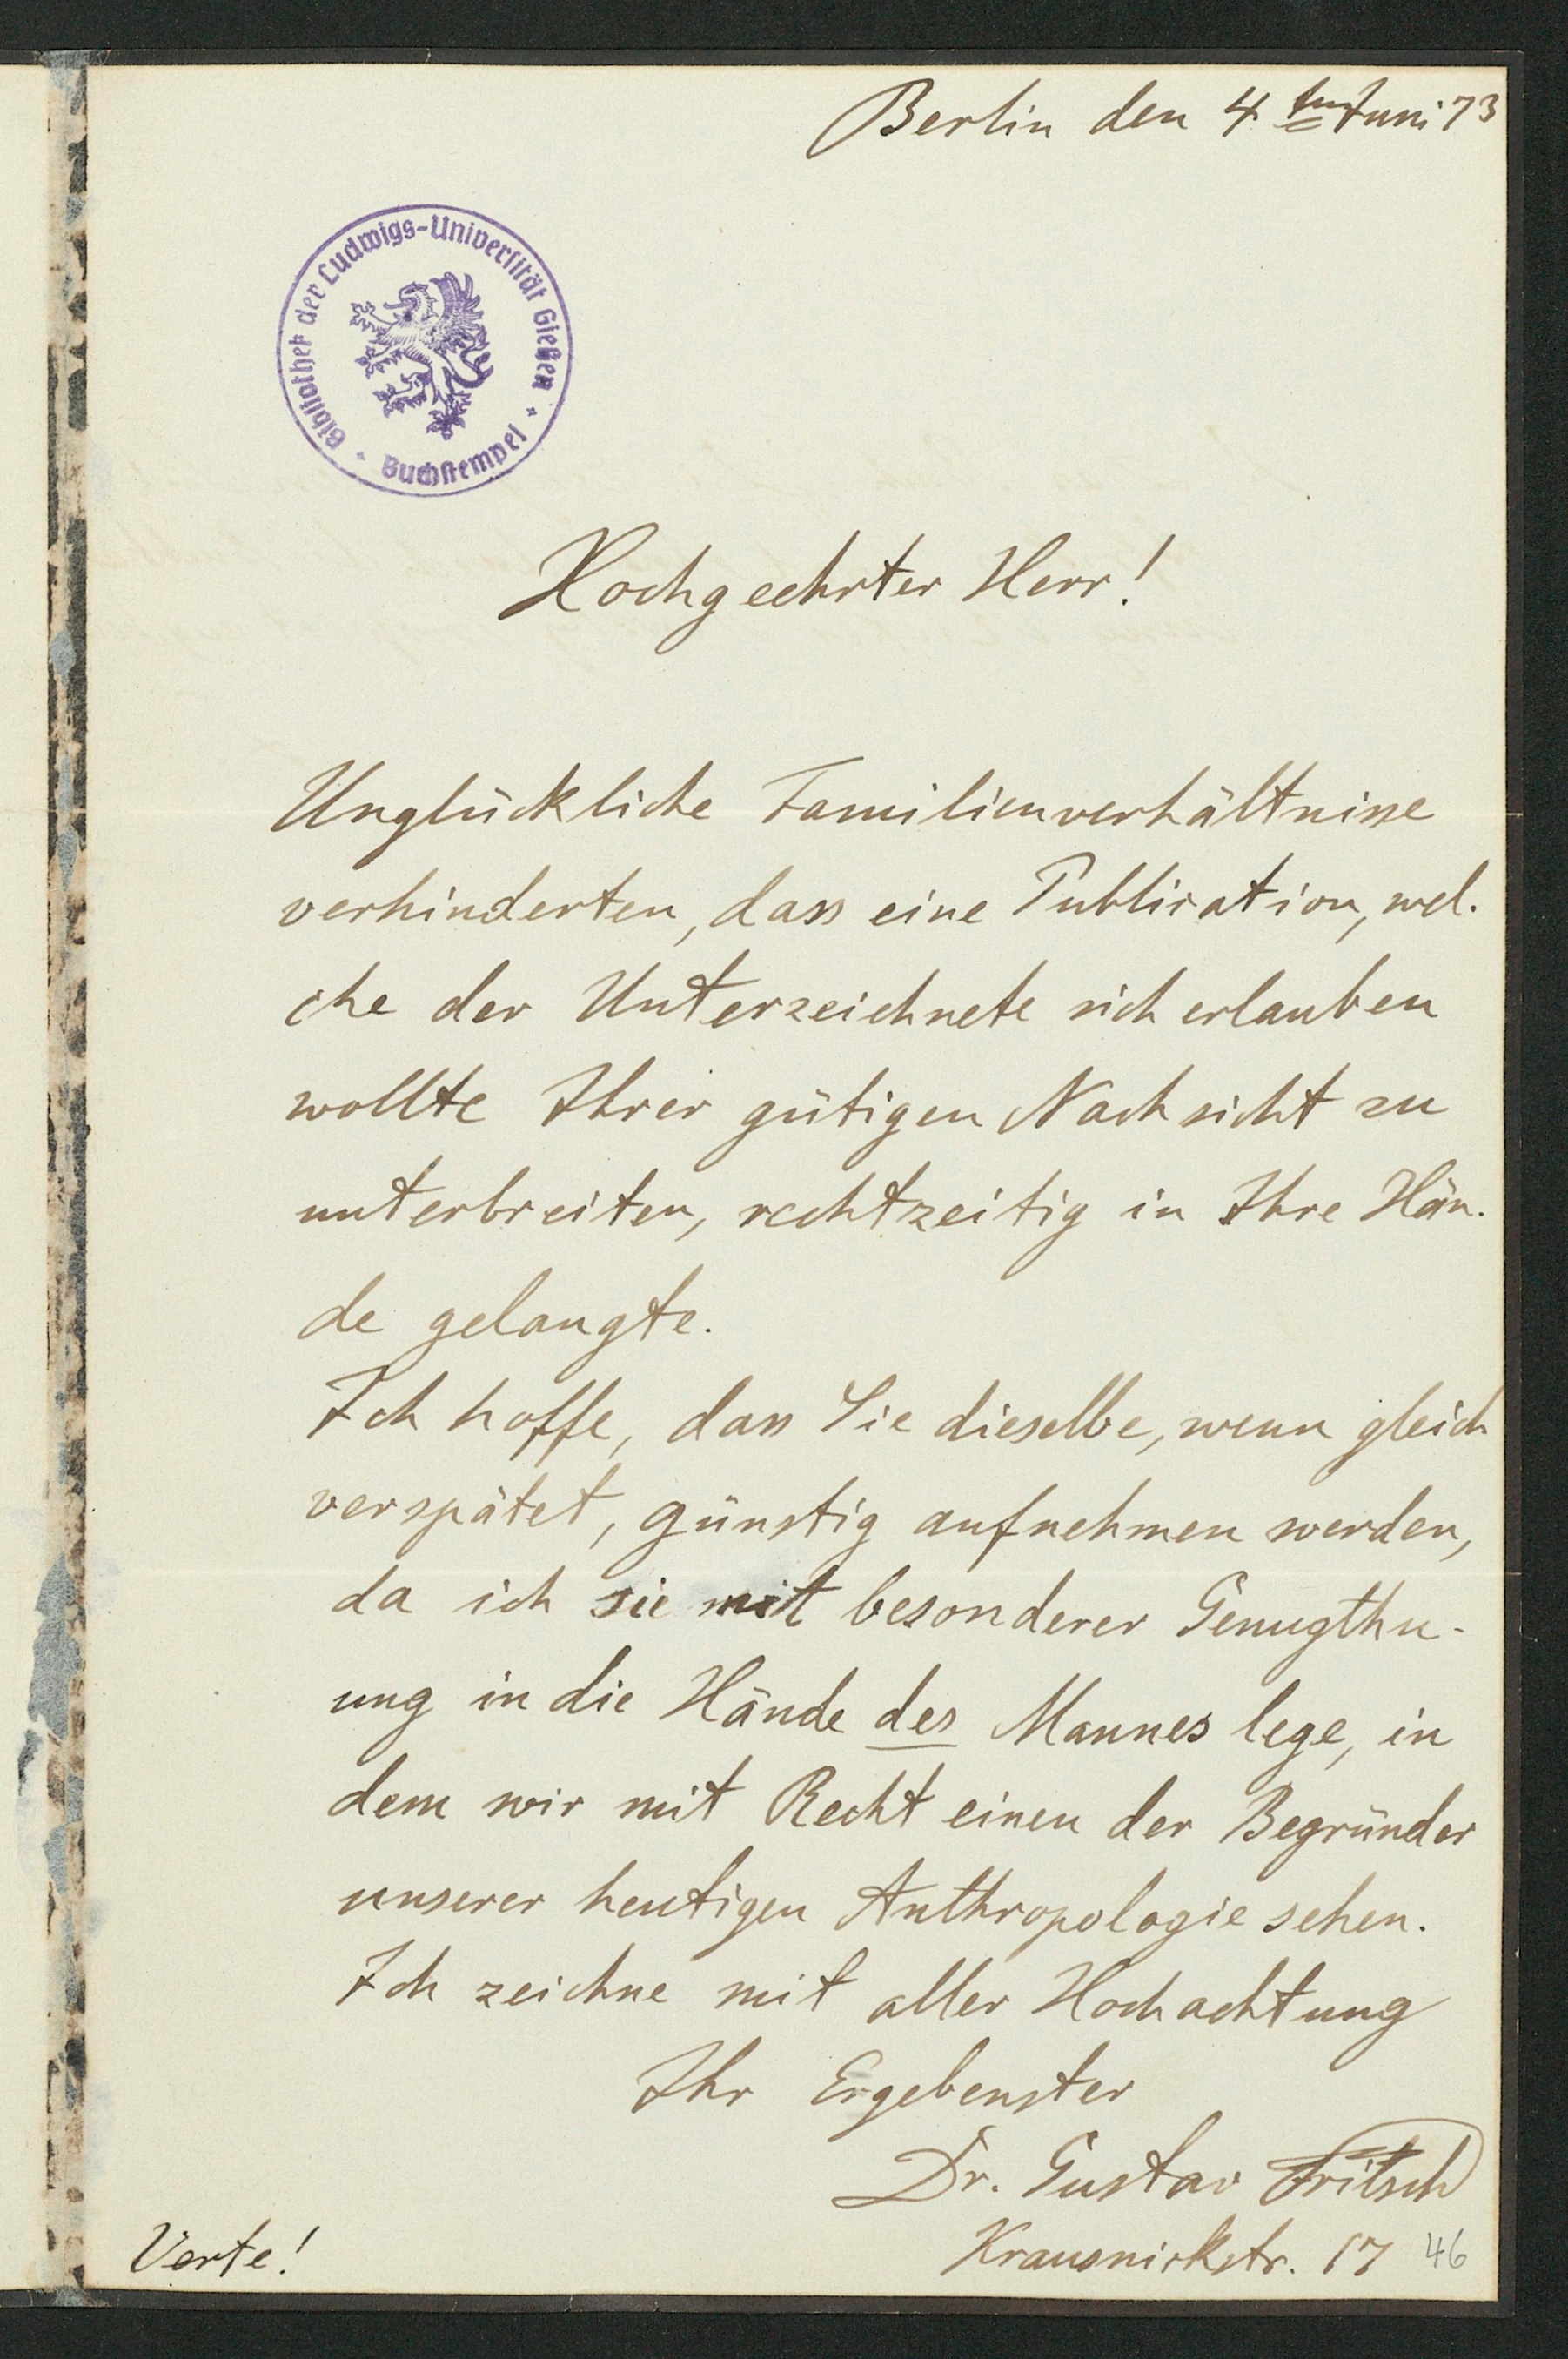 Berlin den 4ten Juni 73
Bibliothek der Ludwigs-Universität Gießen
Buchstempel
Hochgeehrter Herr!
Unglückliche Familienverhältnisse
verhinderten, dass eine Publication, wel-
che der Unterzeichnete sich erlauben
wollte Ihrer gütigen Nachsicht zu
unterbreiten, rechtzeitig in Ihre Hän-
de gelangte.
Ich hoffe, dass Sie dieselbe, wenn gleich
verspätet, günstig aufnehmen werden,
da ich sie mit besonderer Genugthu-
ung in die Hände des Mannes lege, in
dem wir mit Recht einen der Begründer
unserer heutigen Anthropologie sehen.
Ich zeichne mit aller Hochachtung
Ihr Ergebenster
Dr. Gustav Fritsch
Krausnickstr. 17
46
Verte!